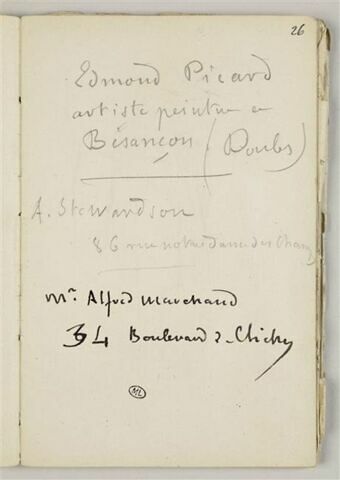 26
Edmond Picard
artiste peintre a
Besançon (Doubs)
A. Stewardson
86 rue notre dame des Champs
Mr. Alfred Marchand
34 Boulevard de Clichy
ML